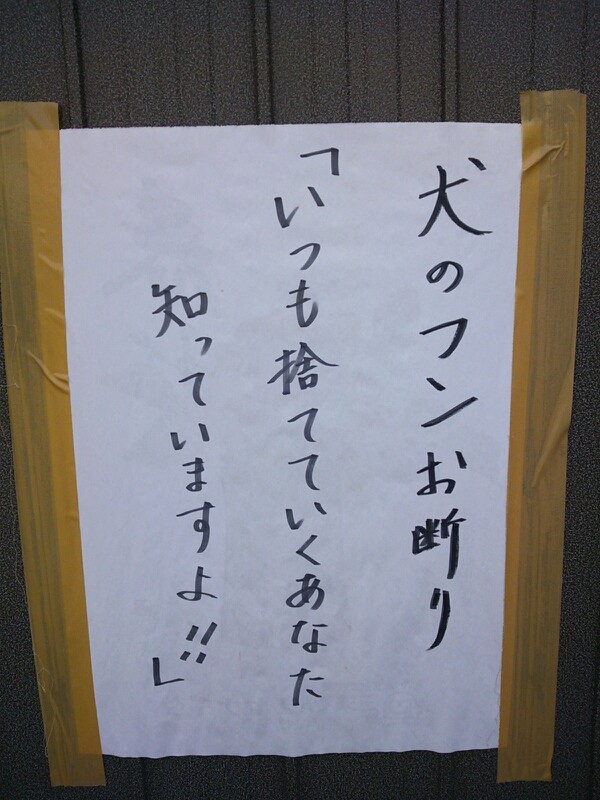 犬のフンお断り
「いつも捨てていくあなた
知っていますよ!!」